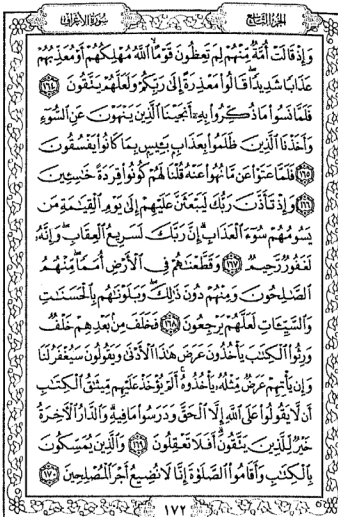 الجزء التاسع سورة الأعراف
وَإِذْ قَالَتْ أُمَّةٌ مِّنْهُمْ لِمَ تَعِظُونَ قَوْمًا ۙ اللَّهُ مُهْلِكُهُمْ أَوْ مُعَذِّبُهُمْ
عَذَابًا شَدِيدًا ۖ قَالُوا مَعْذِرَةً إِلَىٰ رَبِّكُمْ وَلَعَلَّهُمْ يَتَّقُونَ ١٦٤
فَلَمَّا نَسُوا مَا ذُكِّرُوا بِهِ أَنجَيْنَا الَّذِينَ يَنْهَوْنَ عَنِ السُّوءِ
وَأَخَذْنَا الَّذِينَ ظَلَمُوا بِعَذَابٍ بَئِيسٍ بِمَا كَانُوا يَفْسُقُونَ
١٦٥ فَلَمَّا عَتَوْا عَن مَّا نُهُوا عَنْهُ قُلْنَا لَهُمْ كُونُوا قِرَدَةً خَاسِئِينَ
١٦٦ وَإِذْ تَأَذَّنَ رَبُّكَ لَيَبْعَثَنَّ عَلَيْهِمْ إِلَىٰ يَوْمِ الْقِيَامَةِ مَن
يَسُومُهُمْ سُوءَ الْعَذَابِ ۗ إِنَّ رَبَّكَ لَسَرِيعُ الْعِقَابِ ۖ وَإِنَّهُ
لَغَفُورٌ رَّحِيمٌ ١٦٧ وَقَطَّعْنَاهُمْ فِي الْأَرْضِ أُمَمًا ۖ مِّنْهُمُ
الصَّالِحُونَ وَمِنْهُمْ دُونَ ذَٰلِكَ ۖ وَبَلَوْنَاهُم بِالْحَسَنَاتِ
وَالسَّيِّئَاتِ لَعَلَّهُمْ يَرْجِعُونَ ١٦٨ فَخَلَفَ مِن بَعْدِهِمْ خَلْفٌ
وَرِثُوا الْكِتَابَ يَأْخُذُونَ عَرَضَ هَٰذَا الْأَدْنَىٰ وَيَقُولُونَ سَيُغْفَرُ لَنَا
وَإِن يَأْتِهِمْ عَرَضٌ مِّثْلُهُ يَأْخُذُوهُ ۚ أَلَمْ يُؤْخَذْ عَلَيْهِم مِّيثَاقُ الْكِتَابِ
أَن لَّا يَقُولُوا عَلَى اللَّهِ إِلَّا الْحَقَّ وَدَرَسُوا مَا فِيهِ ۗ وَالدَّارُ الْآخِرَةُ
خَيْرٌ لِّلَّذِينَ يَتَّقُونَ ۗ أَفَلَا تَعْقِلُونَ ١٦٩ وَالَّذِينَ يُمَسِّكُونَ
بِالْكِتَابِ وَأَقَامُوا الصَّلَاةَ إِنَّا لَا نُضِيعُ أَجْرَ الْمُصْلِحِينَ ١٧٠
١٧٢